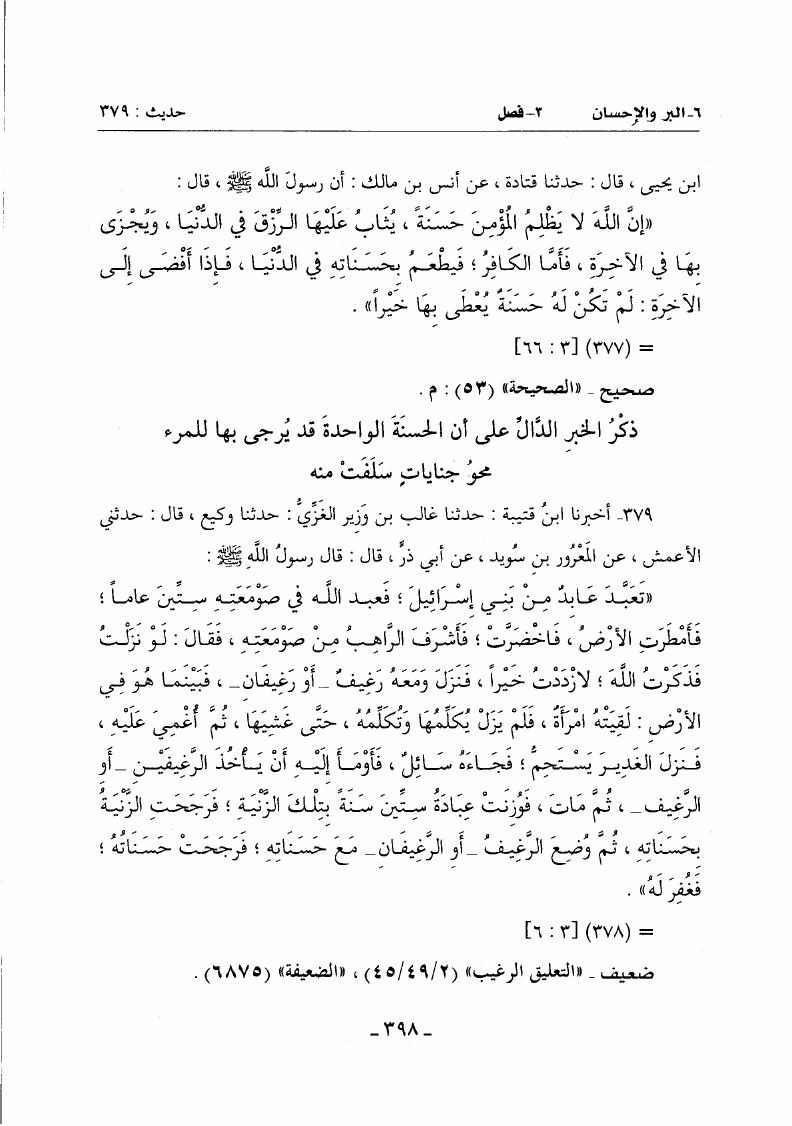 ٦-البر والإحسان ٢-فصل حديث : ٣٧٩
ابن يحيى ، قال : حدثنا قتادة ، عن أنس بن مالك : أن رسولَ اللَّه ﷺ ، قال :
«إنَّ اللَّهَ لا يَظْلِمُ الْمُؤْمِنَ حَسَنَةً ، يُثَابُ عَلَيْهَا الرِّزْقَ فِي الدُّنْيَا ، وَيُجْزَى
بِهَا فِي الآخِرَةِ ، فَأَمَّا الكَافِرُ ؛ فَيَطْعَمُ بِحَسَنَاتِهِ فِي الدُّنْيَا ، فَإِذَا أَفْضَى إِلَى
الآخِرَةِ : لَمْ تَكُنْ لَهُ حَسَنَةٌ يُعْطَى بِهَا خَيْراً» .
= (٣٧٧) [٣ : ٦٦]
صحيح ـ «الصحيحة» (٥٣) : م .
ذكْرُ الخبرِ الدَّالِّ على أن الحسنَةَ الواحدةَ قد يُرجى بها للمرء
محوُ جناياتٍ سَلَفَتْ منه
٣٧٩ـ أخبرنا ابنُ قتيبة : حدثنا غالب بن وَزِيرِ الغَزِّيُّ : حدثنا وكيع ، قال : حدثني
الأعمش ، عن المَعْرُورِ بن سُويد ، عن أبي ذرٍّ ، قال : قال رسولُ اللَّهِ ﷺ :
«تَعَبَّدَ عَابِدٌ مِنْ بَنِي إِسْرَائِيلَ ؛ فَعبد اللَّه فِي صَوْمَعَتِهِ سِتِّينَ عاماً ؛
فَأَمْطَرَتِ الأَرْضُ ، فَاخْضَرَّتْ ؛ فَأَشْرَفَ الرَّاهِبُ مِنْ صَوْمَعَتِهِ ، فَقَالَ : لَوْ نَزَلْتُ
فَذَكَرْتُ اللَّهَ ؛ لازْدَدْتُ خَيْراً ، فَنَزَلَ وَمَعَهُ رَغِيفٌ ـ أَوْ رَغِيفَان ـ ، فَبَيْنَمَا هُوَ فِي
الأَرْضِ : لَقِيَتْهُ امْرَأَةٌ ، فَلَمْ يَزَلْ يُكَلِّمُهَا وَتُكَلِّمُهُ ، حَتَّى غَشِيَهَا ، ثُمَّ أُغْمِيَ عَلَيْهِ ،
فَنَزَلَ الغَدِيرَ يَسْتَحِمُّ ؛ فَجَاءَهُ سَائِلٌ ، فَأَوْمَأَ إِلَيْهِ أَنْ يَأْخُذَ الرَّغِيفَيْنِ ـ أَوِ
الرَّغِيف ـ ، ثُمَّ مَاتَ ، فَوُزِنَتْ عِبَادَةُ سِتِّينَ سَنَةً بِتِلْكَ الزَّنْيَةِ ؛ فَرَجَحَتِ الزَّنْيَةُ
بِحَسَنَاتِهِ ، ثُمَّ وُضِعَ الرَّغِيفُ ـ أَوِ الرَّغِيفَانِ ـ مَعَ حَسَنَاتِهِ ؛ فَرَجَحَتْ حَسَنَاتُهُ ؛
فَغُفِرَ لَهُ» .
= (٣٧٨) [٣ : ٦]
ضعيف ـ «التعليق الرغيب» (٤٥/٤٩/٢) ، «الضعيفة» (٦٨٧٥) .
ـ ٣٩٨ ـ